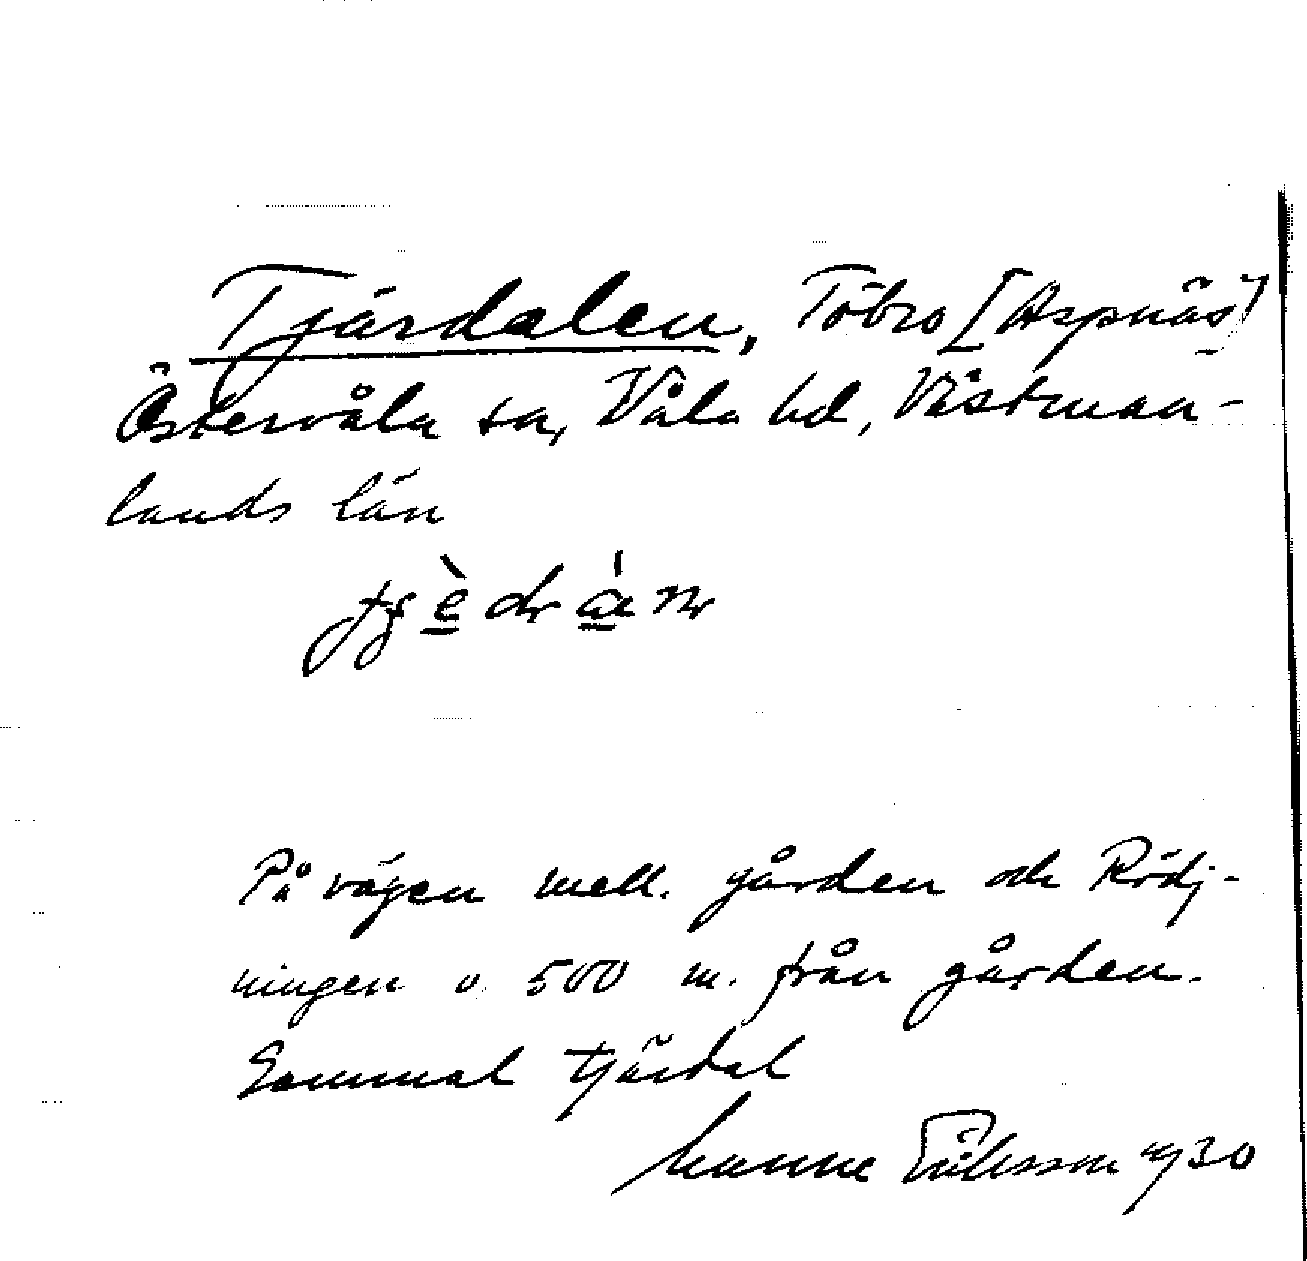 Tjärdalen, Töbro [Aspnäs]
Östervåla sn, Våla hd, Västman-
lands län
På vägen mell. gården och Rödj-
ningen o. 500 m. från gården.
Gammal tjärdal
Manne Eriksson 1930